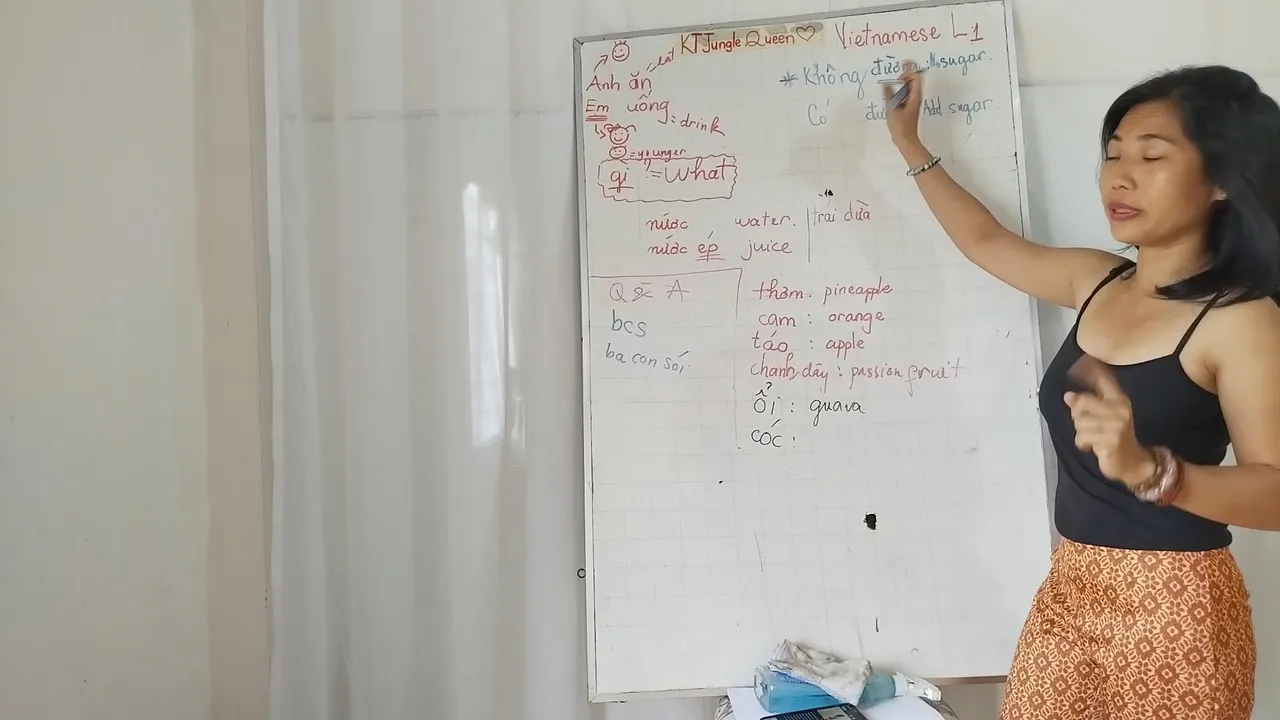 KTJungle Queen♡ Vietnamese L:1
= eat
Anh ăn
Em uống = drink
= younger
gì ? = What
* Không đường : No sugar.
Có Add sugar
nước water. trái dừa
nước ép juice
Q & A
bcs
ba con sói
thơm. pineapple
cam : orange
táo : apple
chanh dây : passion fruit
ổi : guava
cóc :